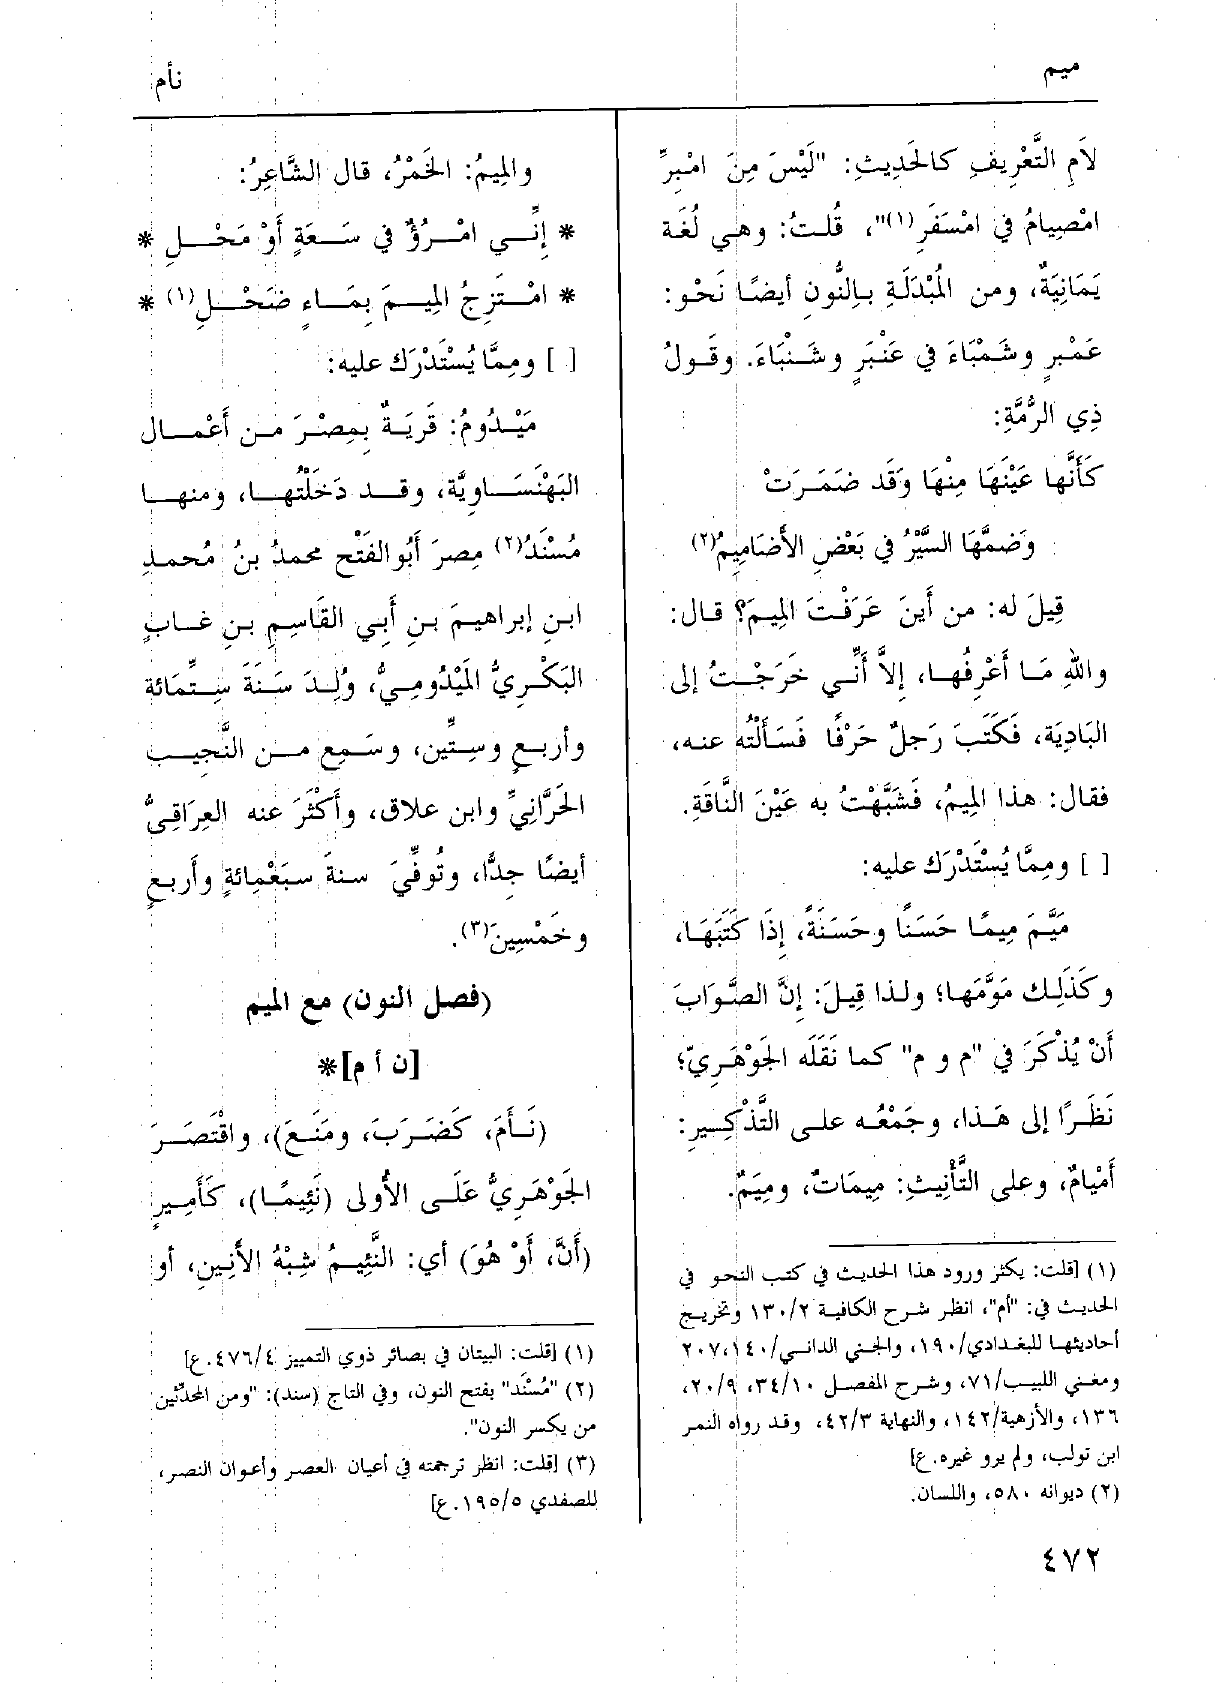 ميم
نأم
لاَمِ التَّعْرِيفِ كالحَدِيثِ: "لَيْسَ مِنَ امْبِرِّ
امْصِيامُ في امْسَفَرِ(١)"، قُلتُ: وهي لُغَة
يَمَانِيَةٌ، ومن المُبْدَلَةِ بالنُّونِ أيضًا نَحْو:
عَمْبرٍ وشَمْبَاءَ في عَنْبَرٍ وشَنْبَاءَ. وقَولُ
ذِي الرُّمَّةِ:
كَأَنَّها عَيْنَهَا مِنْهَا وَقَد ضَمَرَتْ
وَضَمَّهَا السَّيْرُ في بَعْضِ الأَضَامِيمُ(٢)
قِيلَ له: من أَينَ عَرَفْتَ المِيمَ؟ قال:
واللهِ مَا أَعْرِفُها، إِلاَّ أَنِّي خَرَجْتُ إلى
البَادِيَة، فَكَتَبَ رَجلٌ حَرْفًا فَسَأَلْتُه عنه،
فقال: هذا المِيمُ، فَشَبَّهْتُ به عَيْنَ النَّاقَةِ.
[ ] ومِمَّا يُسْتَدْرَك عليه:
مَيَّمَ مِيمًا حَسَنًا وحَسَنَةً، إِذَا كَتَبَهَا،
وكَذَلِك مَوَّمَها؛ ولذا قِيلَ: إِنَّ الصَّوَابَ
أَنْ يُذْكَرَ في "م و م" كما نَقَلَه الجَوْهَرِيّ؛
نَظَرًا إلى هَذا، وجَمْعُه على التَّذْكِيرِ:
أَمْيامٌ، وعلى التَّأْنِيثِ: مِيمَاتٌ، ومِيَمٌ.
(١) [قلت: يكثر ورود هذا الحديث في كتب النحو في
الحديث في: "أم"، انظر شرح الكافية ١٣٠/٢ وتخريج
أحاديثها للبغدادي/١٩٠، والجنى الداني/٢٠٧،١٤٠
ومغني اللبيب/٧١، وشرح المفصل ٣٤/١٠، ٢٠/٩،
١٣٦، والأزهية/١٤٢، والنهاية ٤٢/٣، وقد رواه النمر
ابن تولب، ولم يرو غيره.ع]
(٢) ديوانه ٥٨٠، واللسان.
والمِيمُ: الخَمْرُ، قال الشَّاعِرُ:
* إِنِّي امْرُؤٌ في سَعَةٍ أَوْ مَحْلِ *
* امْتَزِجُ المِيمَ بِمَاءٍ ضَحْلِ(١) *
[ ] ومِمَّا يُسْتَدْرَك عليه:
مَيْدُومُ: قَريَةٌ بمِصْرَ من أَعْمال
البَهْنَسَاوِيَّة، وقد دَخَلْتُها، ومنها
مُسْنَدُ(٢) مِصرَ أَبُو الفَتْح محمدُ بنُ مُحمدِ
ابنِ إبراهيمَ بنِ أَبِي القَاسِمِ بنِ عَابٍ
البَكْرِيُّ المَيْدُومِيُّ، وُلِدَ سَنَةَ سِتِّمَائة
وأربعٍ وسِتِّين، وسَمِع من النَّجِيب
الحَرَّانِيِّ وابن علاق، وأَكْثَرَ عنه العِرَاقِيُّ
أيضًا جِدًّا، وتُوفِّيَ سنةَ سبَعْمِائةٍ وأربعٍ
وخَمْسِينَ(٣).
(فصل النون) مع الميم
[ن أ م]*
(نَأَمَ، كَضَرَبَ، ومَنَعَ)، واقْتَصَرَ
الجَوْهَرِيُّ عَلَى الأُولى (نَئِيمًا)، كَأَمِيرٍ
(أَنَّ، أَوْ هُوَ) أي: النَّئِيمُ شِبْهُ الأَنِينِ، أو
(١) [قلت: البيتان في بصائر ذوي التمييز ٤٧٦/٤.ع]
(٢) "مُسْنَد" بفتح النون، وفي التاج (سند): "ومن المحدّثين
من يكسر النون".
(٣) [قلت: انظر ترجمته في أعيان العصر وأعوان النصر،
للصفدي ١٩٥/٥.ع]
٤٧٢